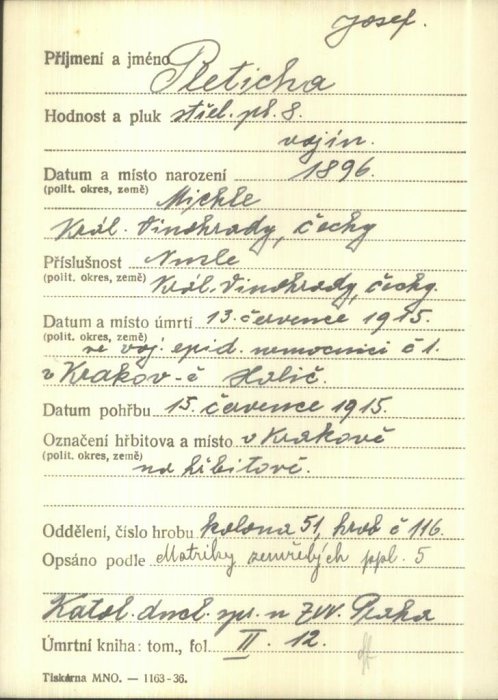 Josef.
Příjmení a jméno Pleticha
Hodnost a pluk střel. pl. 8.
vojín.
Datum a místo narození 1896.
(polit. okres, země) Michle
Král. Vinohrady, Čechy
Příslušnost Nusle
(polit. okres, země) Král. Vinohrady, Čechy.
Datum a místo úmrtí 13. července 1915.
(polit. okres, země) ve voj. epid. nemocnici č 1.
v Krakov-ě Halič.
Datum pohřbu 15. července 1915.
Označení hřbitova a místo v Krakově
(polit. okres, země) na hřbitově.
Oddělení, číslo hrobu kolona 51, hrob č 116.
Opsáno podle Matriky zemřelých ppl. 5
Katol. duch. spr. u ZVV. Praha
Úmrtní kniha: tom., fol. II. 12.
Tiskárna MNO. — 1163-36.